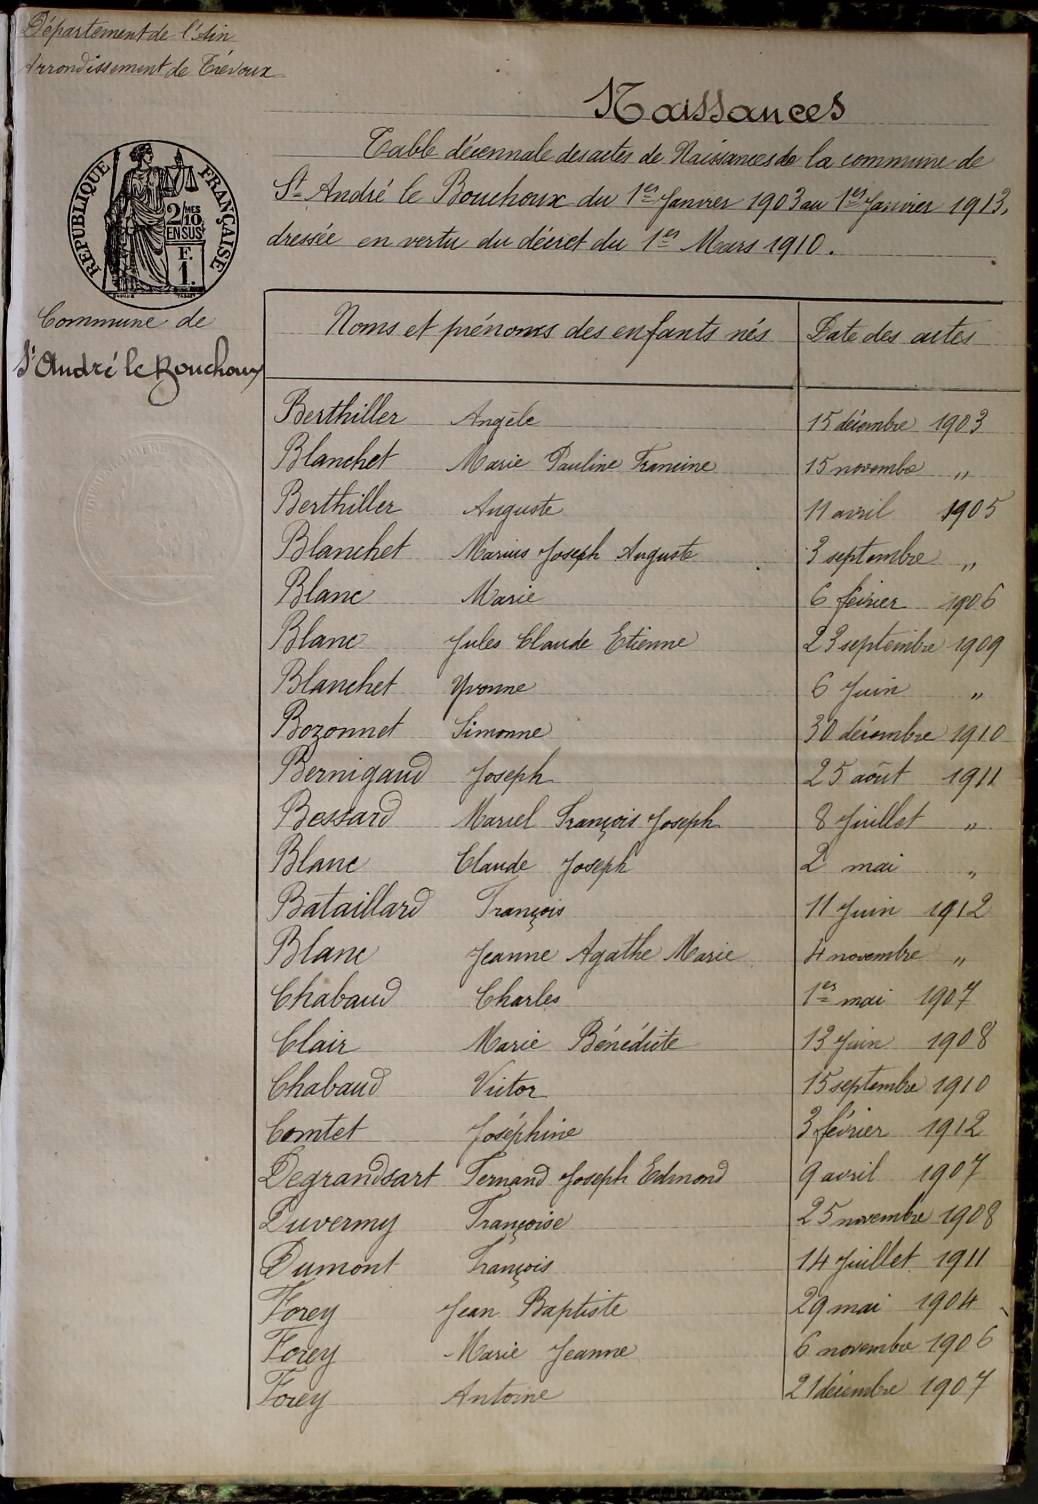 Département de l'Ain
Arrondissement de Trévoux
Naissances
Table décennale des actes de Naissances de la commune de
St André le Bouchoux du 1er Janvier 1903 au 1er Janvier 1913,
dressée en vertu du décret du 1er Mars 1910.
RÉPUBLIQUE FRANÇAISE
2/10 MES
EN SUS
F.
1.
Commune de
St André le Bouchoux
Noms et prénoms des enfants nés Date des actes
Berthiller Angèle 15 décembre 1903
Blanchet Marie Pauline Francine 15 novembre "
Berthiller Auguste 11 avril 1905
Blanchet Marius Joseph Auguste 3 septembre "
Blanc Marie 6 février 1906
Blanc Jules Claude Etienne 23 septembre 1909
Blanchet Yvonne 6 Juin "
Bozonnet Simonne 30 décembre 1910
Bernigaud Joseph 25 août 1911
Bessard Marcel François Joseph 8 Juillet "
Blanc Claude Joseph 2 mai "
Bataillard François 11 Juin 1912
Blanc Jeanne Agathe Marie 4 novembre "
Chabaud Charles 1er mai 1907
Clair Marie Bénédicte 13 Juin 1908
Chabaud Victor 15 septembre 1910
Comtet Joséphine 3 février 1912
Degrandsart Fernand Joseph Edmond 9 avril 1907
Duvermy Françoise 25 novembre 1908
Dumont François 14 Juillet 1911
Forey Jean Baptiste 29 mai 1904
Forey Marie Jeanne 6 novembre 1906
Forey Antoine 21 décembre 1907